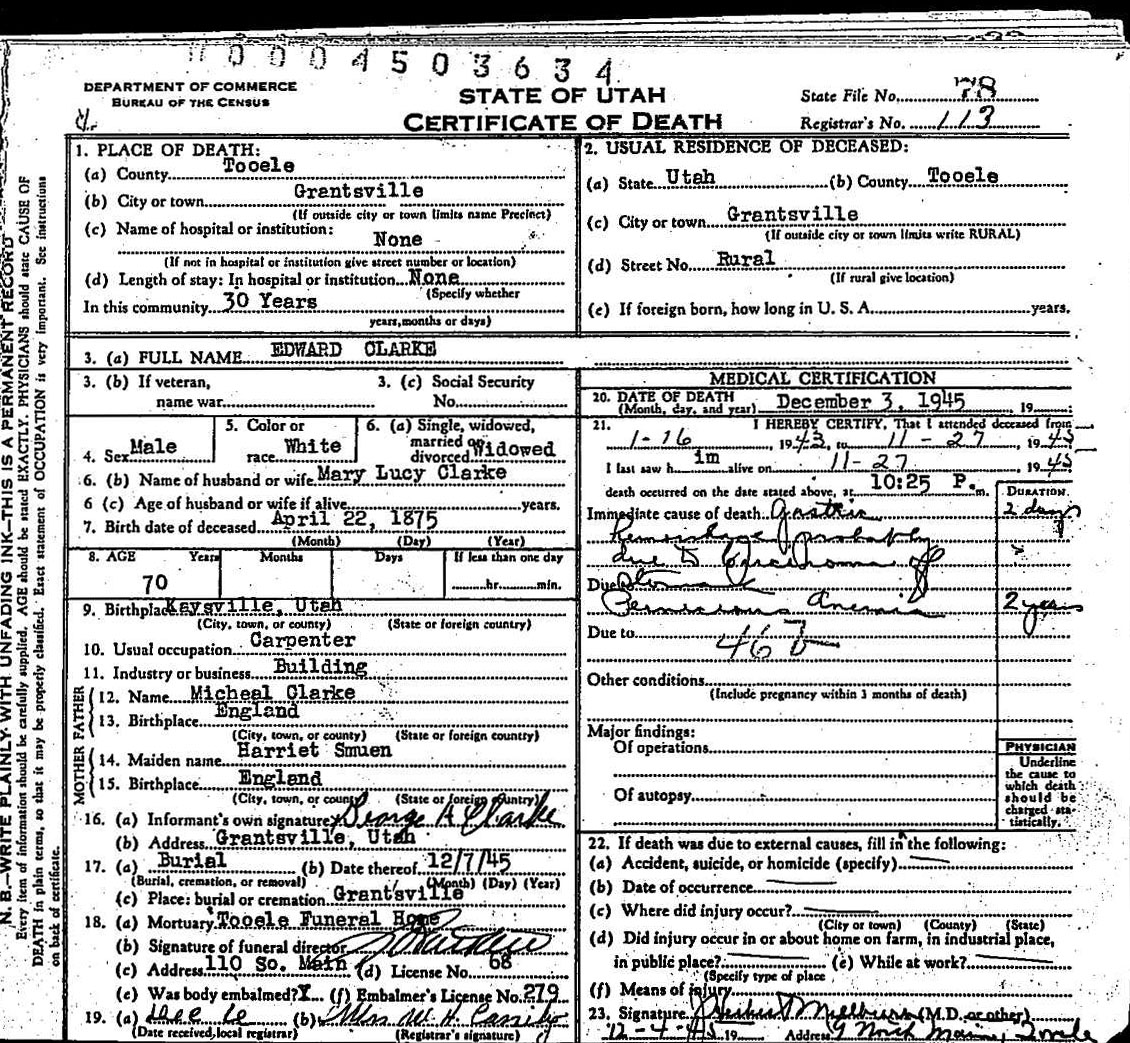 0004503634
DEPARTMENT OF COMMERCE
BUREAU OF THE CENSUS
STATE OF UTAH
CERTIFICATE OF DEATH
State File No. 78
Registrar's No. 113
N. B.—WRITE PLAINLY WITH UNFADING INK—THIS IS A PERMANENT RECORD
Every item of information should be carefully supplied. AGE should be stated EXACTLY. PHYSICIANS should state CAUSE OF
DEATH in plain terms, so that it may be properly classified. Exact statement of OCCUPATION is very important. See instructions
on back of certificate.
1. PLACE OF DEATH:
(a) County Tooele
(b) City or town Grantsville
(If outside city or town limits name Precinct)
(c) Name of hospital or institution:
None
(If not in hospital or institution give street number or location)
(d) Length of stay: In hospital or institution None
(Specify whether
In this community 30 Years
years, months or days)
2. USUAL RESIDENCE OF DECEASED:
(a) State Utah (b) County Tooele
(c) City or town Grantsville
(If outside city or town limits write RURAL)
(d) Street No. Rural
(If rural give location)
(e) If foreign born, how long in U. S. A. years.
3. (a) FULL NAME EDWARD CLARKE
3. (b) If veteran, 3. (c) Social Security
name war No.
4. Sex Male
5. Color or
race White
6. (a) Single, widowed,
married or
divorced Widowed
6. (b) Name of husband or wife Mary Lucy Clarke
6 (c) Age of husband or wife if alive years.
7. Birth date of deceased April 22, 1875
(Month) (Day) (Year)
8. AGE Years Months Days If less than one day
70 hr. min.
9. Birthplace Kaysville, Utah
(City, town, or county) (State or foreign country)
10. Usual occupation Carpenter
11. Industry or business Building
FATHER
12. Name Micheal Clarke
13. Birthplace England
(City, town, or county) (State or foreign country)
MOTHER
14. Maiden name Harriet Smuen
15. Birthplace England
(City, town, or county) (State or foreign country)
16. (a) Informant's own signature George A Clarke
(b) Address Grantsville, Utah
17. (a) Burial (b) Date thereof 12/7/45
(Burial, cremation, or removal) (Month) (Day) (Year)
(c) Place: burial or cremation Grantsville
18. (a) Mortuary Tooele Funeral Home
(b) Signature of funeral director
(c) Address 110 So. Main (d) License No. 68
(e) Was body embalmed? X (f) Embalmer's License No. 279
19. (a) Dec (b) Mrs W. H.
(Date received, local registrar) (Registrar's signature)
MEDICAL CERTIFICATION
20. DATE OF DEATH
(Month, day, and year) December 3, 1945 19
21. I HEREBY CERTIFY, That I attended deceased from
1-16 1943, to 11-27 1945
I last saw him alive on 11-27, 1945
death occurred on the date stated above, at 10:25 P. m.
DURATION
Immediate cause of death Gastric 2 days
Hemorrhage probably
due to Carcinoma of
Due Stomach
Pernicious Anemia 2 years
Due to
46 b
Other conditions
(Include pregnancy within 3 months of death)
Major findings:
Of operations
Of autopsy
PHYSICIAN
Underline
the cause to
which death
should be
charged sta-
tistically.
22. If death was due to external causes, fill in the following:
(a) Accident, suicide, or homicide (specify)
(b) Date of occurrence
(c) Where did injury occur?
(City or town) (County) (State)
(d) Did injury occur in or about home on farm, in industrial place,
in public place? (e) While at work?
(Specify type of place
(f) Means of injury
23. Signature Milburn (M.D. or other)
12-4-45 19 Address 9 North Main, Tooele